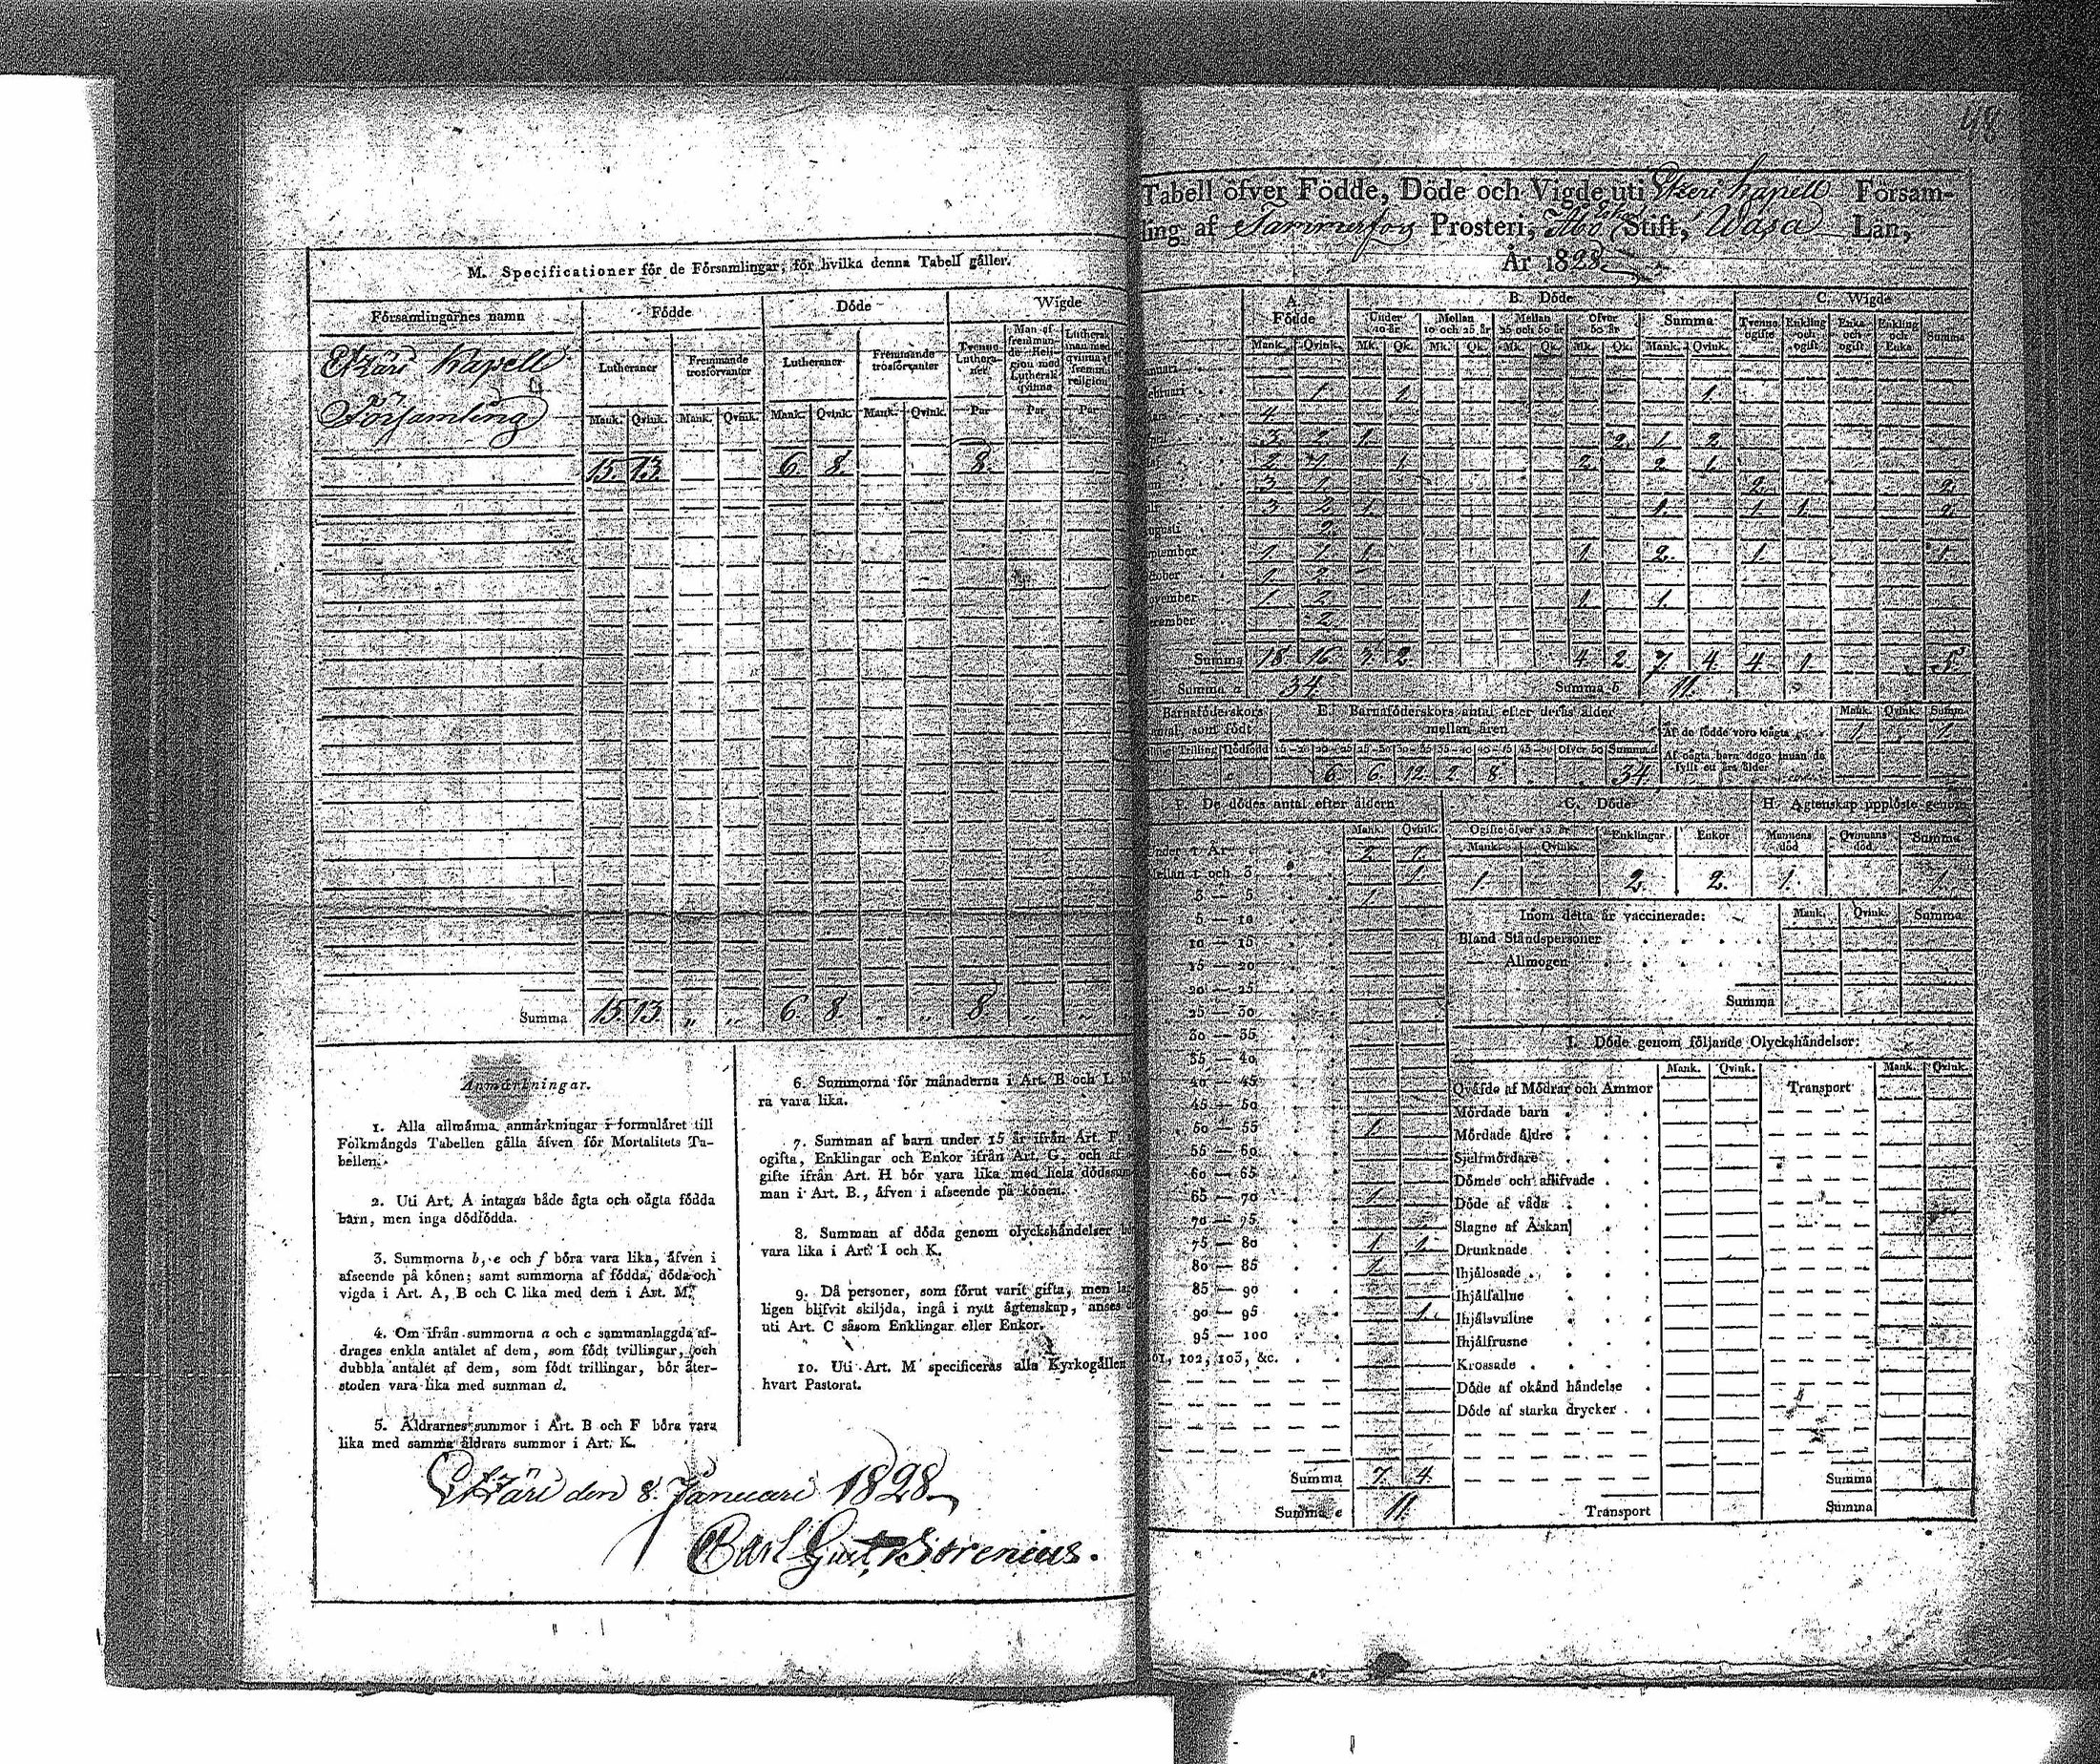 M. Specificationer för de Församlingar, för hvilka denna Tabell gäller.
Församlingarnes namn Födde Döde Wigde
Lutheraner Fremmande trosförvanter Lutheraner Fremmande trosförvanter Tvenne Lutheraner Man af fremmande Religion med Luthersk qvinna Luthersk man med qvinna af fremm. religion
Mank. Qvink. Mank. Qvink. Mank. Qvink. Mank. Qvink. Par Par Par
Etzäri Kapell
Församling
15. 13. 6. 8. 8.
Summa 15. 13. „ „ 6. 8. „ „ 8. „ „
Anmärkningar.
1. Alla allmänna anmärkningar i formuläret till
Folkmängds Tabellen gälla äfven för Mortalitets Ta-
bellen.
2. Uti Art. A intagas både ägta och oägta födda
barn, men inga dödfödda.
3. Summorna b, e och f böra vara lika, äfven i
afseende på könen; samt summorna af födda, döda och
vigda i Art. A, B och C lika med dem i Art. M.
4. Om ifrån summorna a och c sammanlaggda af-
drages enkla antalet af dem, som födt tvillingar, och
dubbla antalet af dem, som födt trillingar, bör åter-
stoden vara lika med summan d.
5. Åldrarnes summor i Art. B och F böra vara
lika med samma åldrars summor i Art. K.
6. Summorna för månaderna i Art. B och L
ra vara lika.
7. Summan af barn under 15 år ifrån Art. F
ogifta, Enklingar och Enkor ifrån Art. G. och af
gifte ifrån Art. H bör vara lika med hela dödssum-
man i Art. B., äfven i afseende på könen.
8. Summan af döda genom olyckshändelser
vara lika i Art. I och K.
9. Då personer, som förut varit gifta, men
ligen blifvit skiljda, ingå i nytt ägtenskap, anses
uti Art. C såsom Enklingar eller Enkor.
10. Uti Art. M specificeras alla Kyrkogällen
hvart Pastorat.
Etzäri den 8. Januari 1828
Carl Gust. Sorenius.
48
Tabell öfver Födde, Döde och Vigde uti Kapell Försam-
ling af Tammerfors Prosteri, Åbo Stift, Wasa Län,
År 1828
A. Födde B. Döde C. Wigde
Under 10 år Mellan 10 och 25 år Mellan 25 och 50 år Öfver 50 år Summa Tvenne ogifte Enkling och ogift Enka och ogift Enkling och Enka Summa
Mank. Qvink. Mk. Qk. Mk. Qk. Mk. Qk. Mk. Qk. Mank. Qvink.
anuari
ebruari 1. 1. 1.
ars 4.
pril 3 2 1. 2. 1. 2.
aj 2. 1 1. 2. 2 1.
uni 3 1. 2. 2.
uli 3 2 1. 1. 1. 1. 2.
ugusti 2.
ptember 1. 1. 1. 1. 2. 1. 1.
ctober 1. 2.
ovember 1. 2. 1. 1.
ecember 2.
Summa 18. 16. 3. 2 4. 2. 7. 4. 4. 1. 5.
Summa a 34. Summa b 11.
Barnaföderskors antal, som födt E. Barnaföderskors antal efter deras ålder mellan åren
Mank. Qvink. Summa
Trilling Dödfödd 15-20 20-25 25-30 30-35 35-40 40-45 45-50 Öfver 50 Summa d
6. 6. 12. 2. 8. 34.
Af de födde voro oägta 1. 1.
Af oägta barn dogo innan de fyllt ett års ålder
F. De dödes antal efter åldern G. Döde H. Ägtenskap upplöste genom
Mank. Qvink. Ogifte öfver 15 år Enklingar Enkor Mannens död Qvinnans död Summa
Mank. Qvink.
1. 2. 2. 1. 1.
nder 1 År 2. 1.
Mellan 1 och 3 1.
3 — 5 1.
5 — 10
10 — 15
15 — 20
20 — 25
25 — 30
30 — 35
35 — 40
40 — 45
45 — 50
50 — 55 1.
55 — 60
60 — 65
65 — 70 1.
70 — 75
75 — 80 1. 1.
80 — 85 1.
85 — 90
90 — 95 1.
95 — 100
101, 102, 103, &c.
Summa 7. 4.
Summa e 11.
Inom detta år vaccinerade: Mank. Qvink. Summa
Bland Ståndspersoner
— Allmogen
Summa
I. Döde genom följande Olyckshändelser:
Mank. Qvink. Mank. Qvink.
Qväfde af Mödrar och Ammor Transport
Mördade barn
Mördade äldre
Sjelfmördare
Dömde och aflifvade
Döde af våda
Slagne af Åskan
Drunknade
Ihjälosade
Ihjälfallne
Ihjälsvultne
Ihjälfrusne
Krossade
Döde af okänd händelse
Döde af starka drycker
Summa
Transport Summa